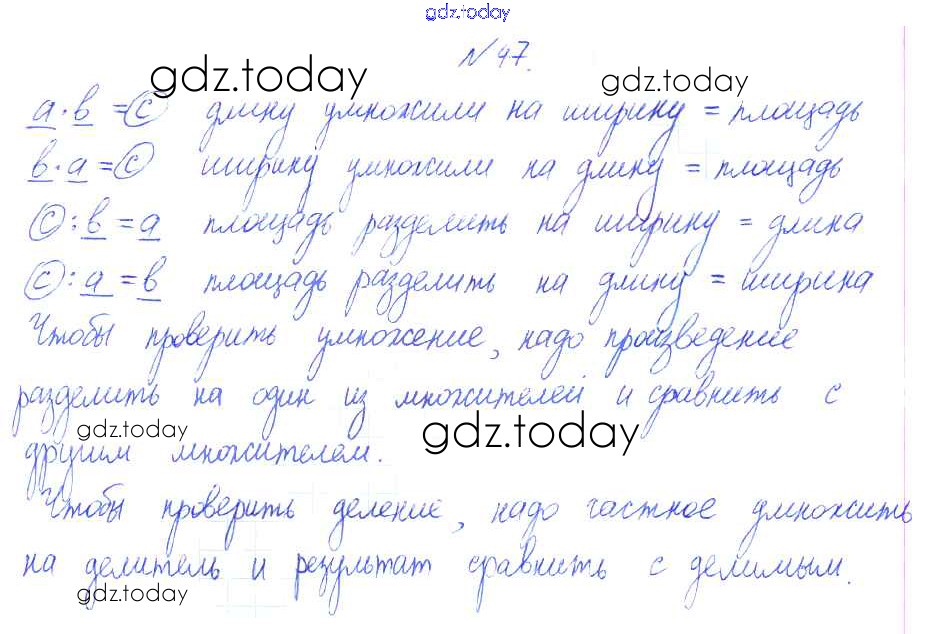 gdz.today
№47.
gdz.today gdz.today
a·b=c длину умножили на ширину = площадь
b·a=c ширину умножили на длину = площадь
c:b=a площадь разделить на ширину = длина
c:a=b площадь разделить на длину = ширина
Чтобы проверить умножение, надо произведение
разделить на один из множителей и сравнить с
gdz.today gdz.today
другим множителем.
Чтобы проверить деление, надо частное умножить
на делитель и результат сравнить с делимым.
gdz.today gdz.today